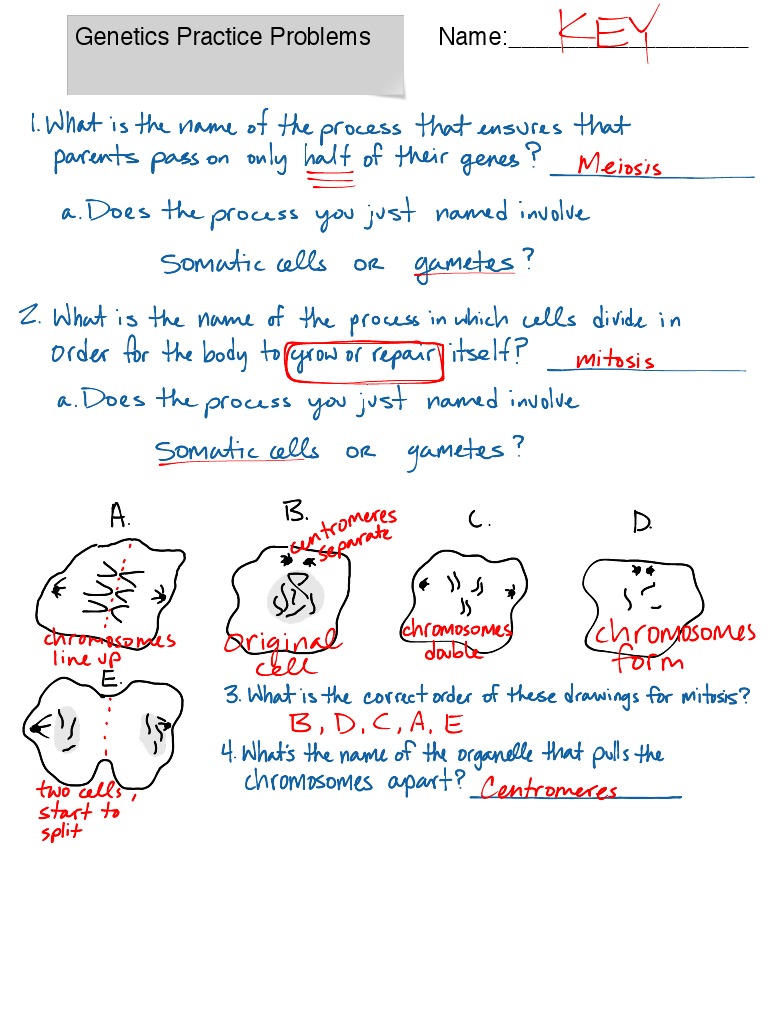 Genetics Practice Problems Name:___________________ KEY
1. What is the name of the process that ensures that
parents pass on only half of their genes? Meiosis
a. Does the process you just named involve
Somatic cells or gametes?
2. What is the name of the process in which cells divide in
order for the body to grow or repair itself? mitosis
a. Does the process you just named involve
Somatic cells or gametes?
A. B. C. D.
centromeres
separate
chromosomes
line up
original
cell
chromosomes
double
chromosomes
form
E.
two cells,
start to
split
3. What is the correct order of these drawings for mitosis?
B, D, C, A, E
4. What's the name of the organelle that pulls the
chromosomes apart? Centromeres